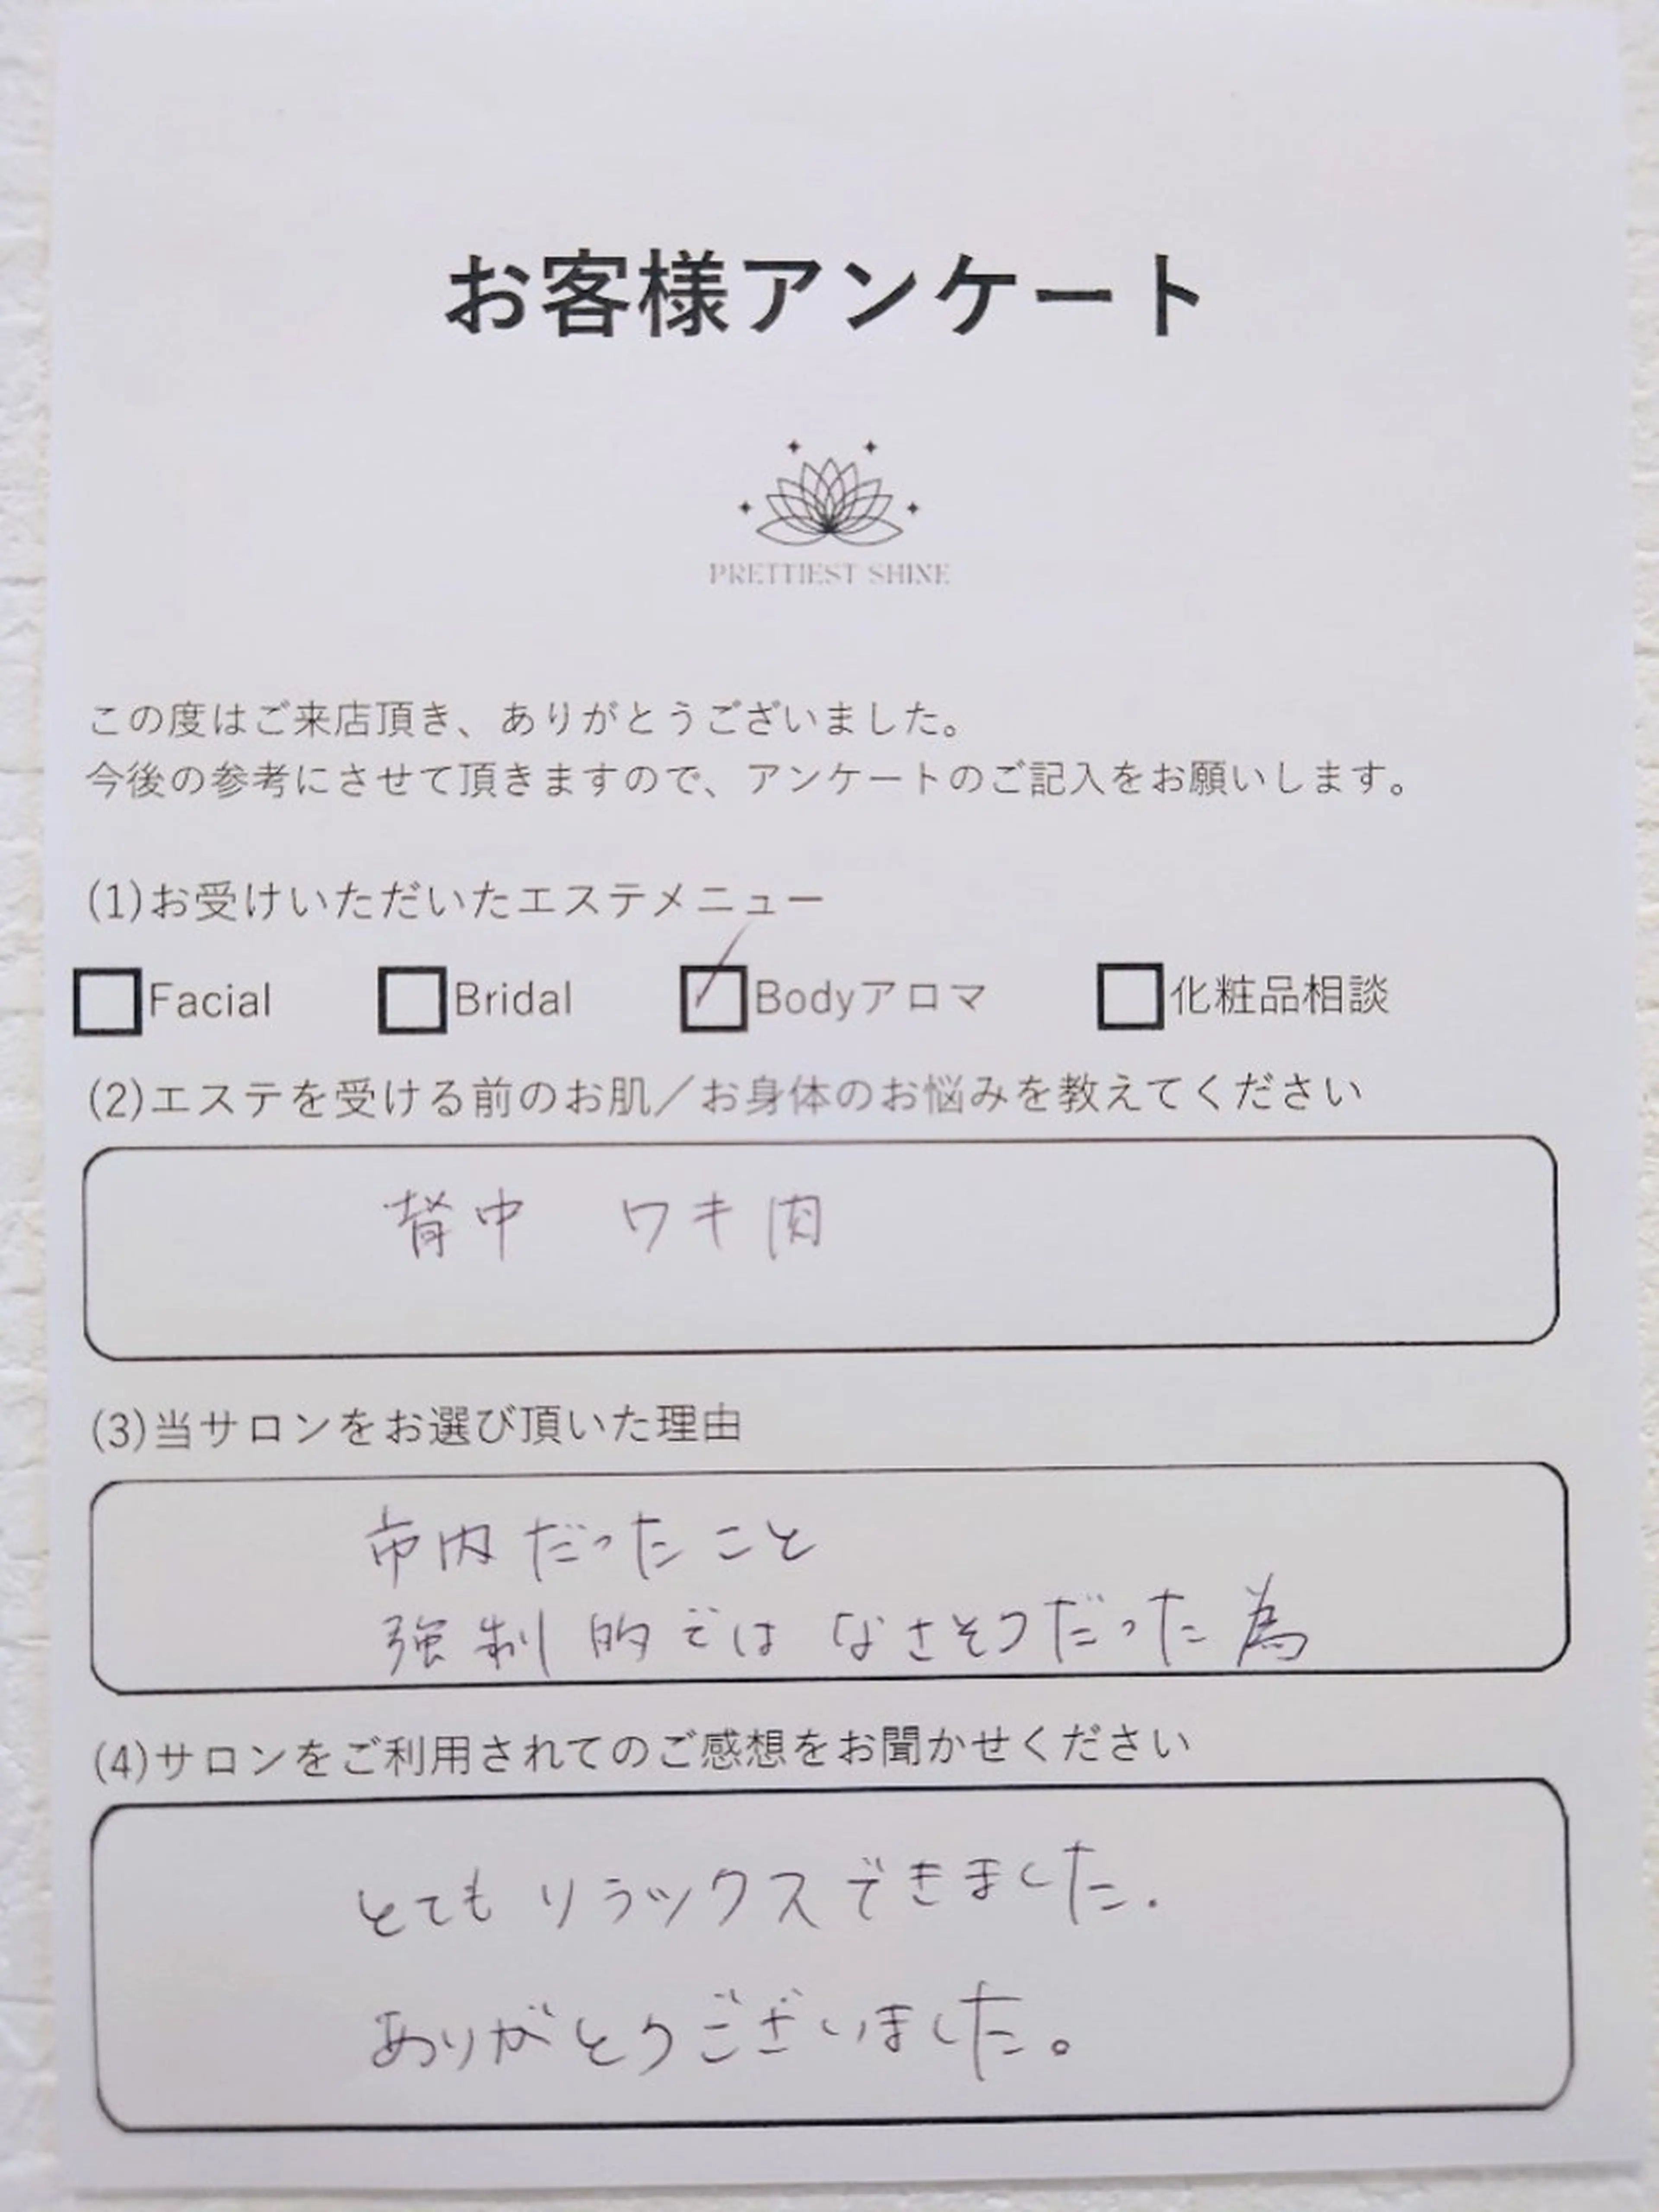 お客様アンケート
PRETTIEST SHINE
この度はご来店頂き、ありがとうございました。
今後の参考にさせて頂きますので、アンケートのご記入をお願いします。
(1)お受けいただいたエステメニュー
Facial Bridal Bodyアロマ 化粧品相談
(2)エステを受ける前のお肌／お身体のお悩みを教えてください
背中 ワキ肉
(3)当サロンをお選び頂いた理由
市内だったこと
強制的では なさそうだった為
(4)サロンをご利用されてのご感想をお聞かせください
とてもリラックスできました.
ありがとうございました。